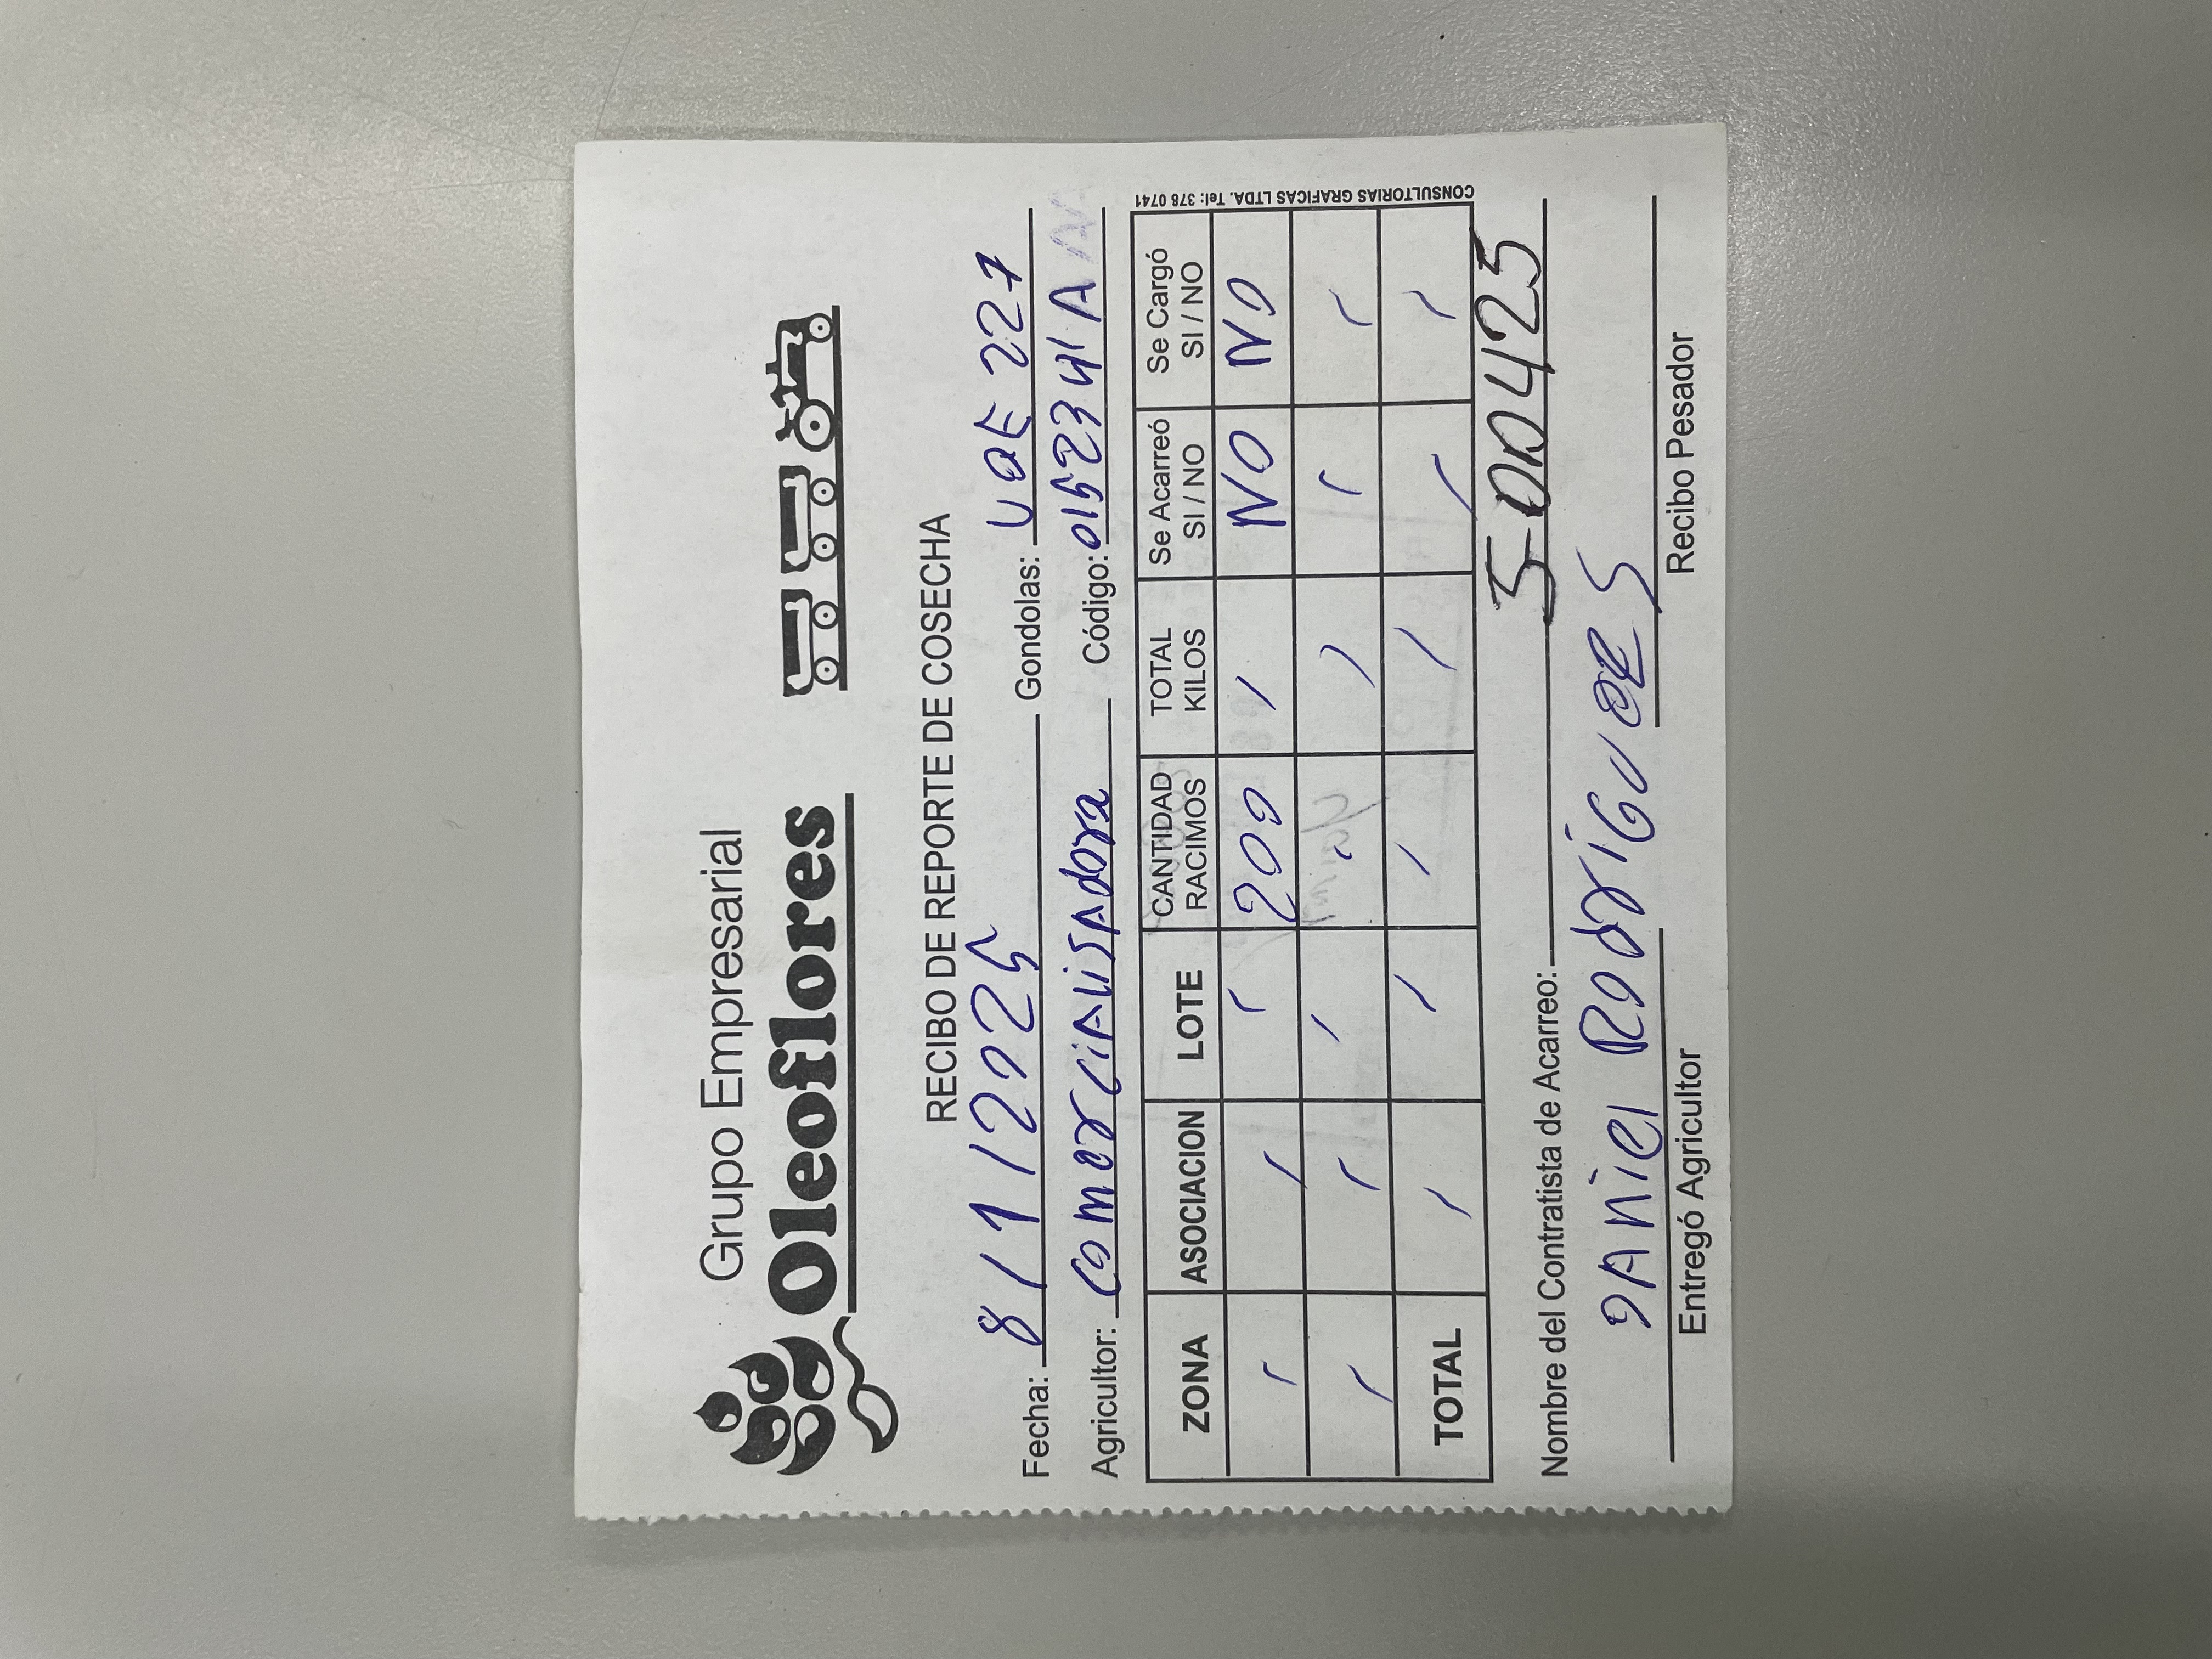 Grupo Empresarial
Oleoflores
RECIBO DE REPORTE DE COSECHA
Fecha: 8/1/2025 Gondolas: UQE 227
Agricultor: comercialisadora Código: 0152341 A
ZONA ASOCIACION LOTE CANTIDAD RACIMOS TOTAL KILOS Se Acarreó SI / NO Se Cargó SI / NO
/ / / 200 / NO NO
/ / / / / / /
TOTAL / / / / / /
CONSULTORIAS GRAFICAS LTDA. Tel: 378 0741
500425
Nombre del Contratista de Acarreo:
DANiel RodriGUEZ S
Entregó Agricultor Recibo Pesador